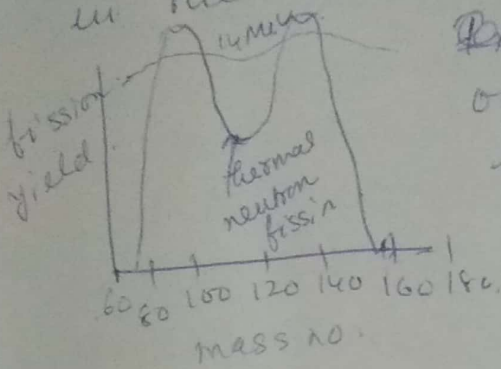 in
14 MeV
fission
yield
thermal
neutron
fissin
60 80 100 120 140 160 180
mass no.